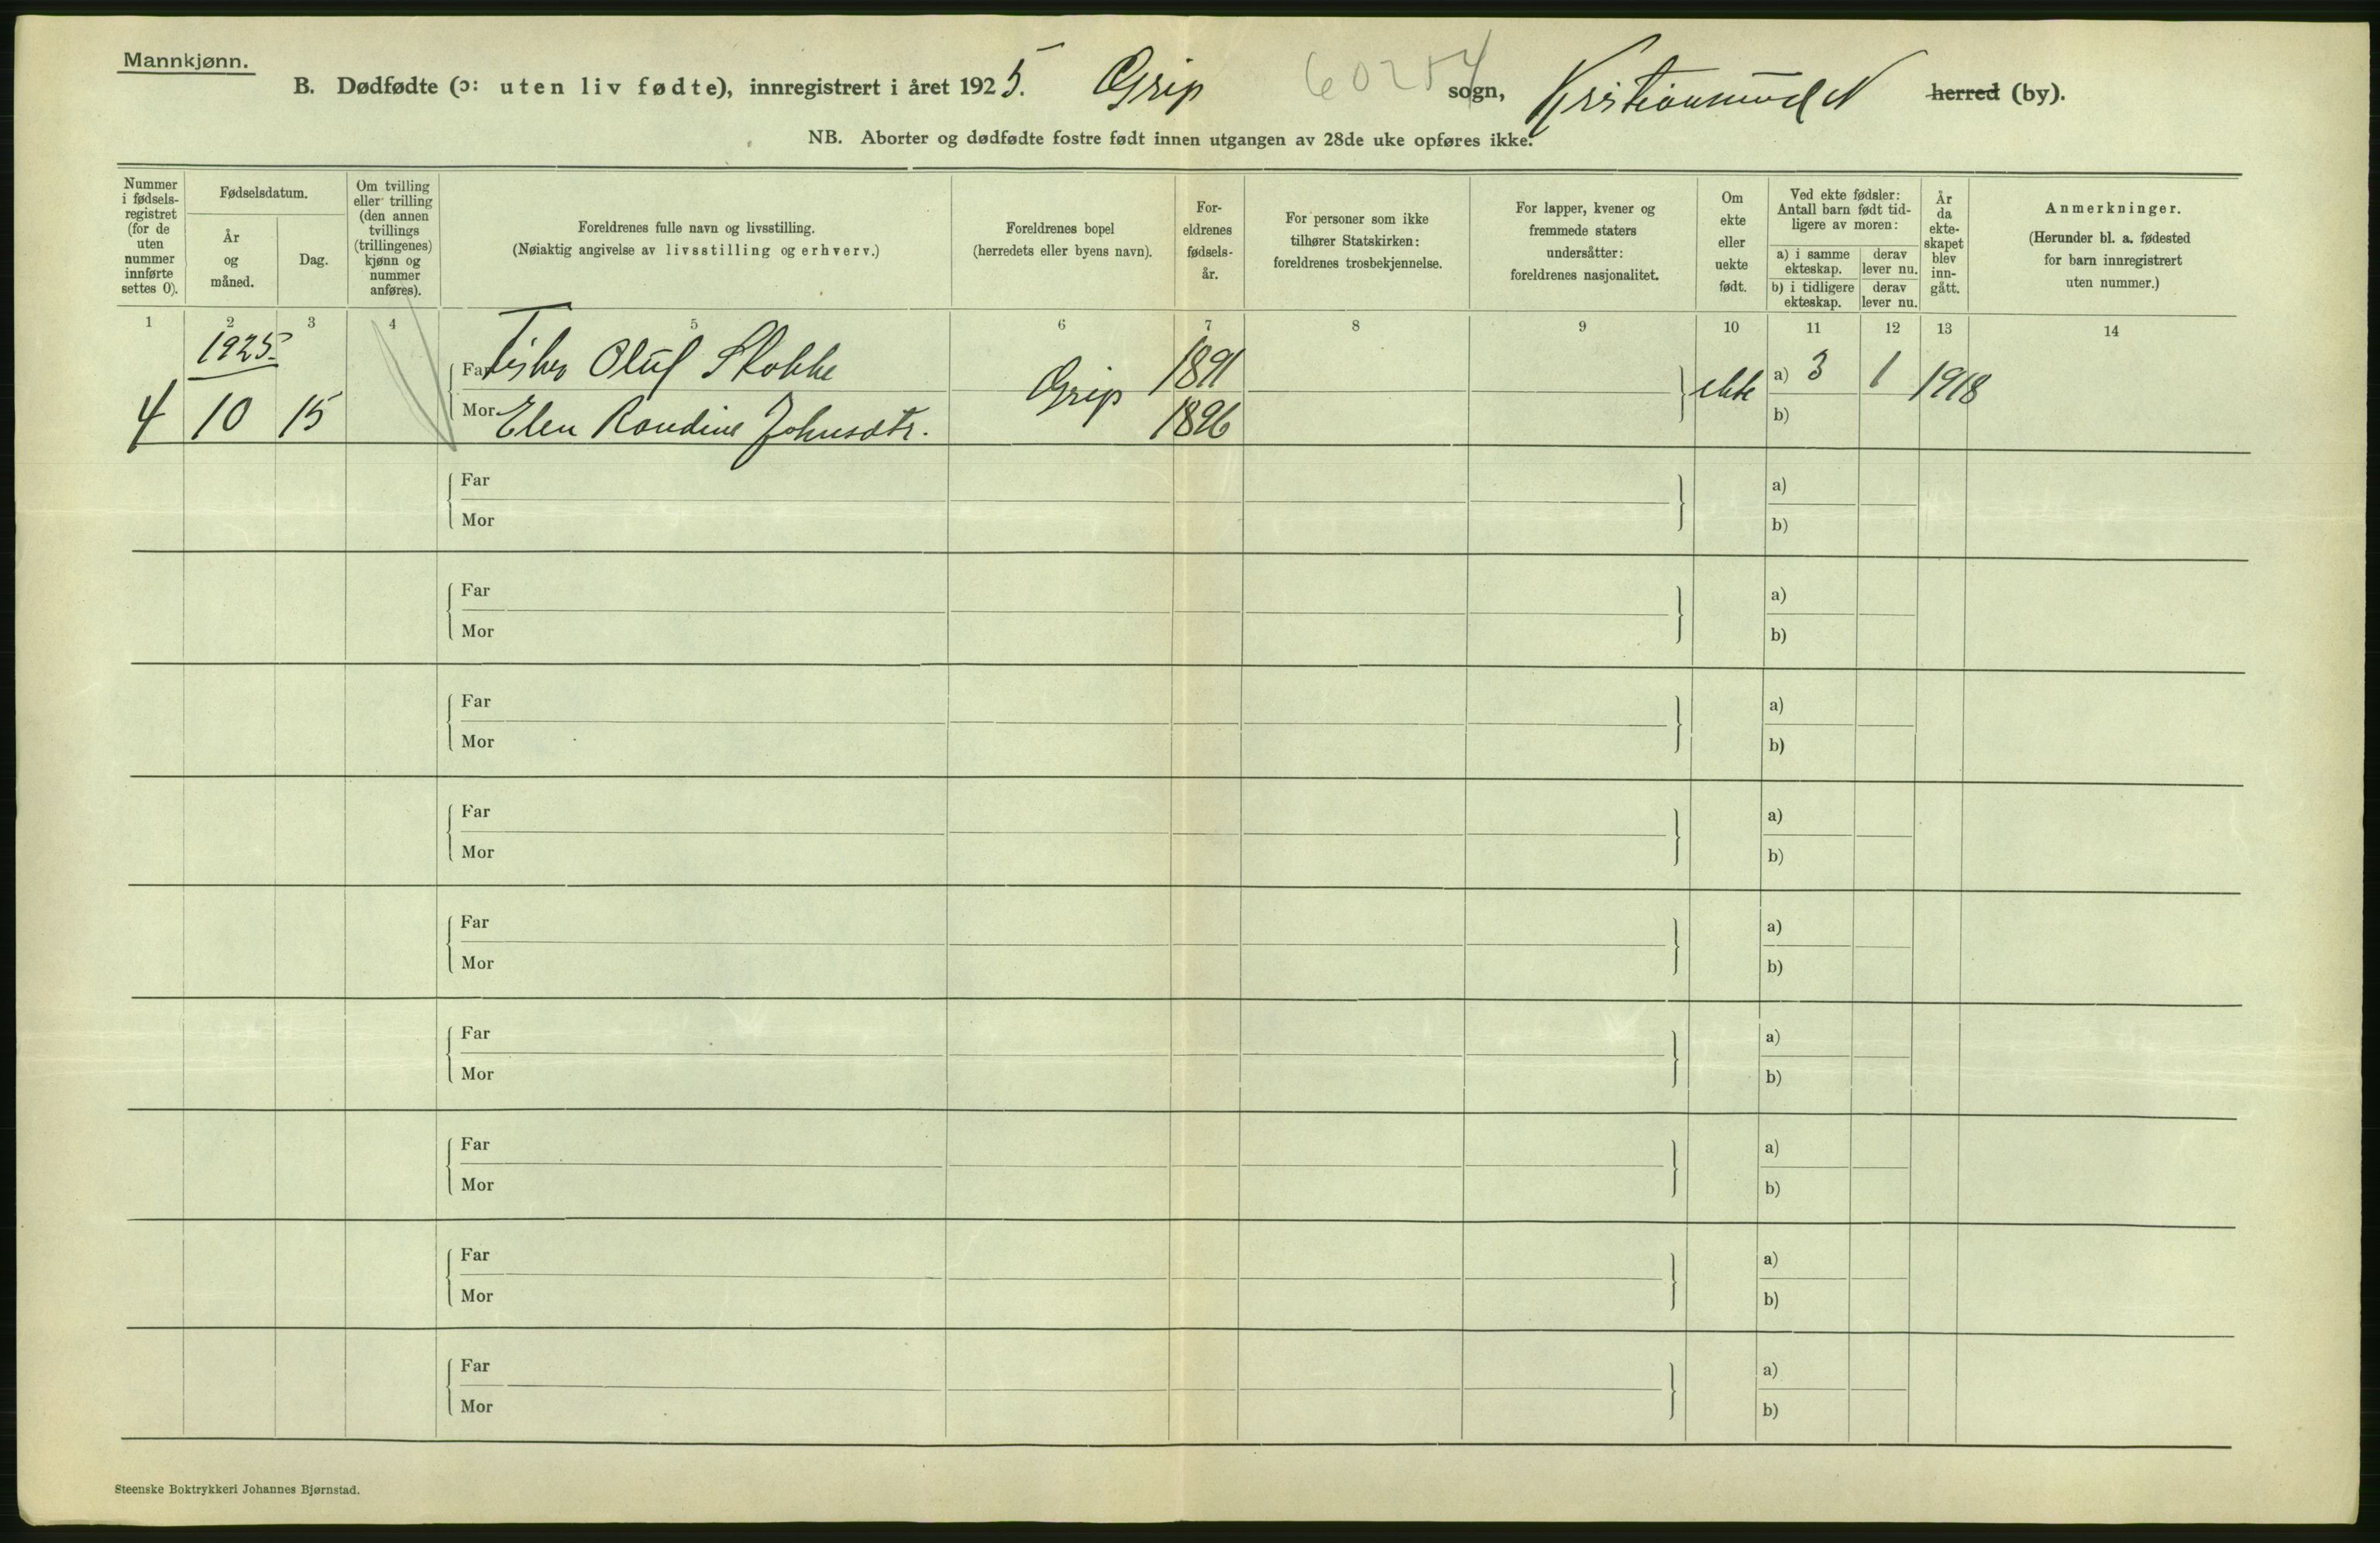 Mannkjønn.
B. Dødfødte (ɔ: uten liv fødte), innregistrert i året 1925. Grip sogn, Kristiansund N herred (by).
NB. Aborter og dødfødte fostre født innen utgangen av 28de uke opføres ikke.
Nummer i fødsels-registret (for de uten nummer innførte settes 0).
Fødselsdatum.
År og måned.
Dag.
Om tvilling eller trilling (den annen tvillings (trillingenes) kjønn og nummer anføres).
Foreldrenes fulle navn og livsstilling.
(Nøiaktig angivelse av livsstilling og erhverv.)
Foreldrenes bopel
(herredets eller byens navn).
For-eldrenes fødsels-år.
For personer som ikke tilhører Statskirken: foreldrenes trosbekjennelse.
For lapper, kvener og fremmede staters undersåtter: foreldrenes nasjonalitet.
Om ekte eller uekte født.
Ved ekte fødsler: Antall barn født tid-ligere av moren:
a) i samme ekteskap.
derav lever nu.
b) i tidligere ekteskap.
derav lever nu.
År da ekte-skapet blev inn-gått.
Anmerkninger.
(Herunder bl. a. fødested for barn innregistrert uten nummer.)
1 2 3 4 5 6 7 8 9 10 11 12 13 14
1925
Far Fisker Oluf Stokke 1891
4 10 15 Grip ekte a) 3 1 1918
Mor Elen Randine Johnsdtr. 1896 b)
Far a)
Mor b)
Far a)
Mor b)
Far a)
Mor b)
Far a)
Mor b)
Far a)
Mor b)
Far a)
Mor b)
Far a)
Mor b)
Far a)
Mor b)
Far a)
Mor b)
Steenske Boktrykkeri Johannes Bjørnstad.